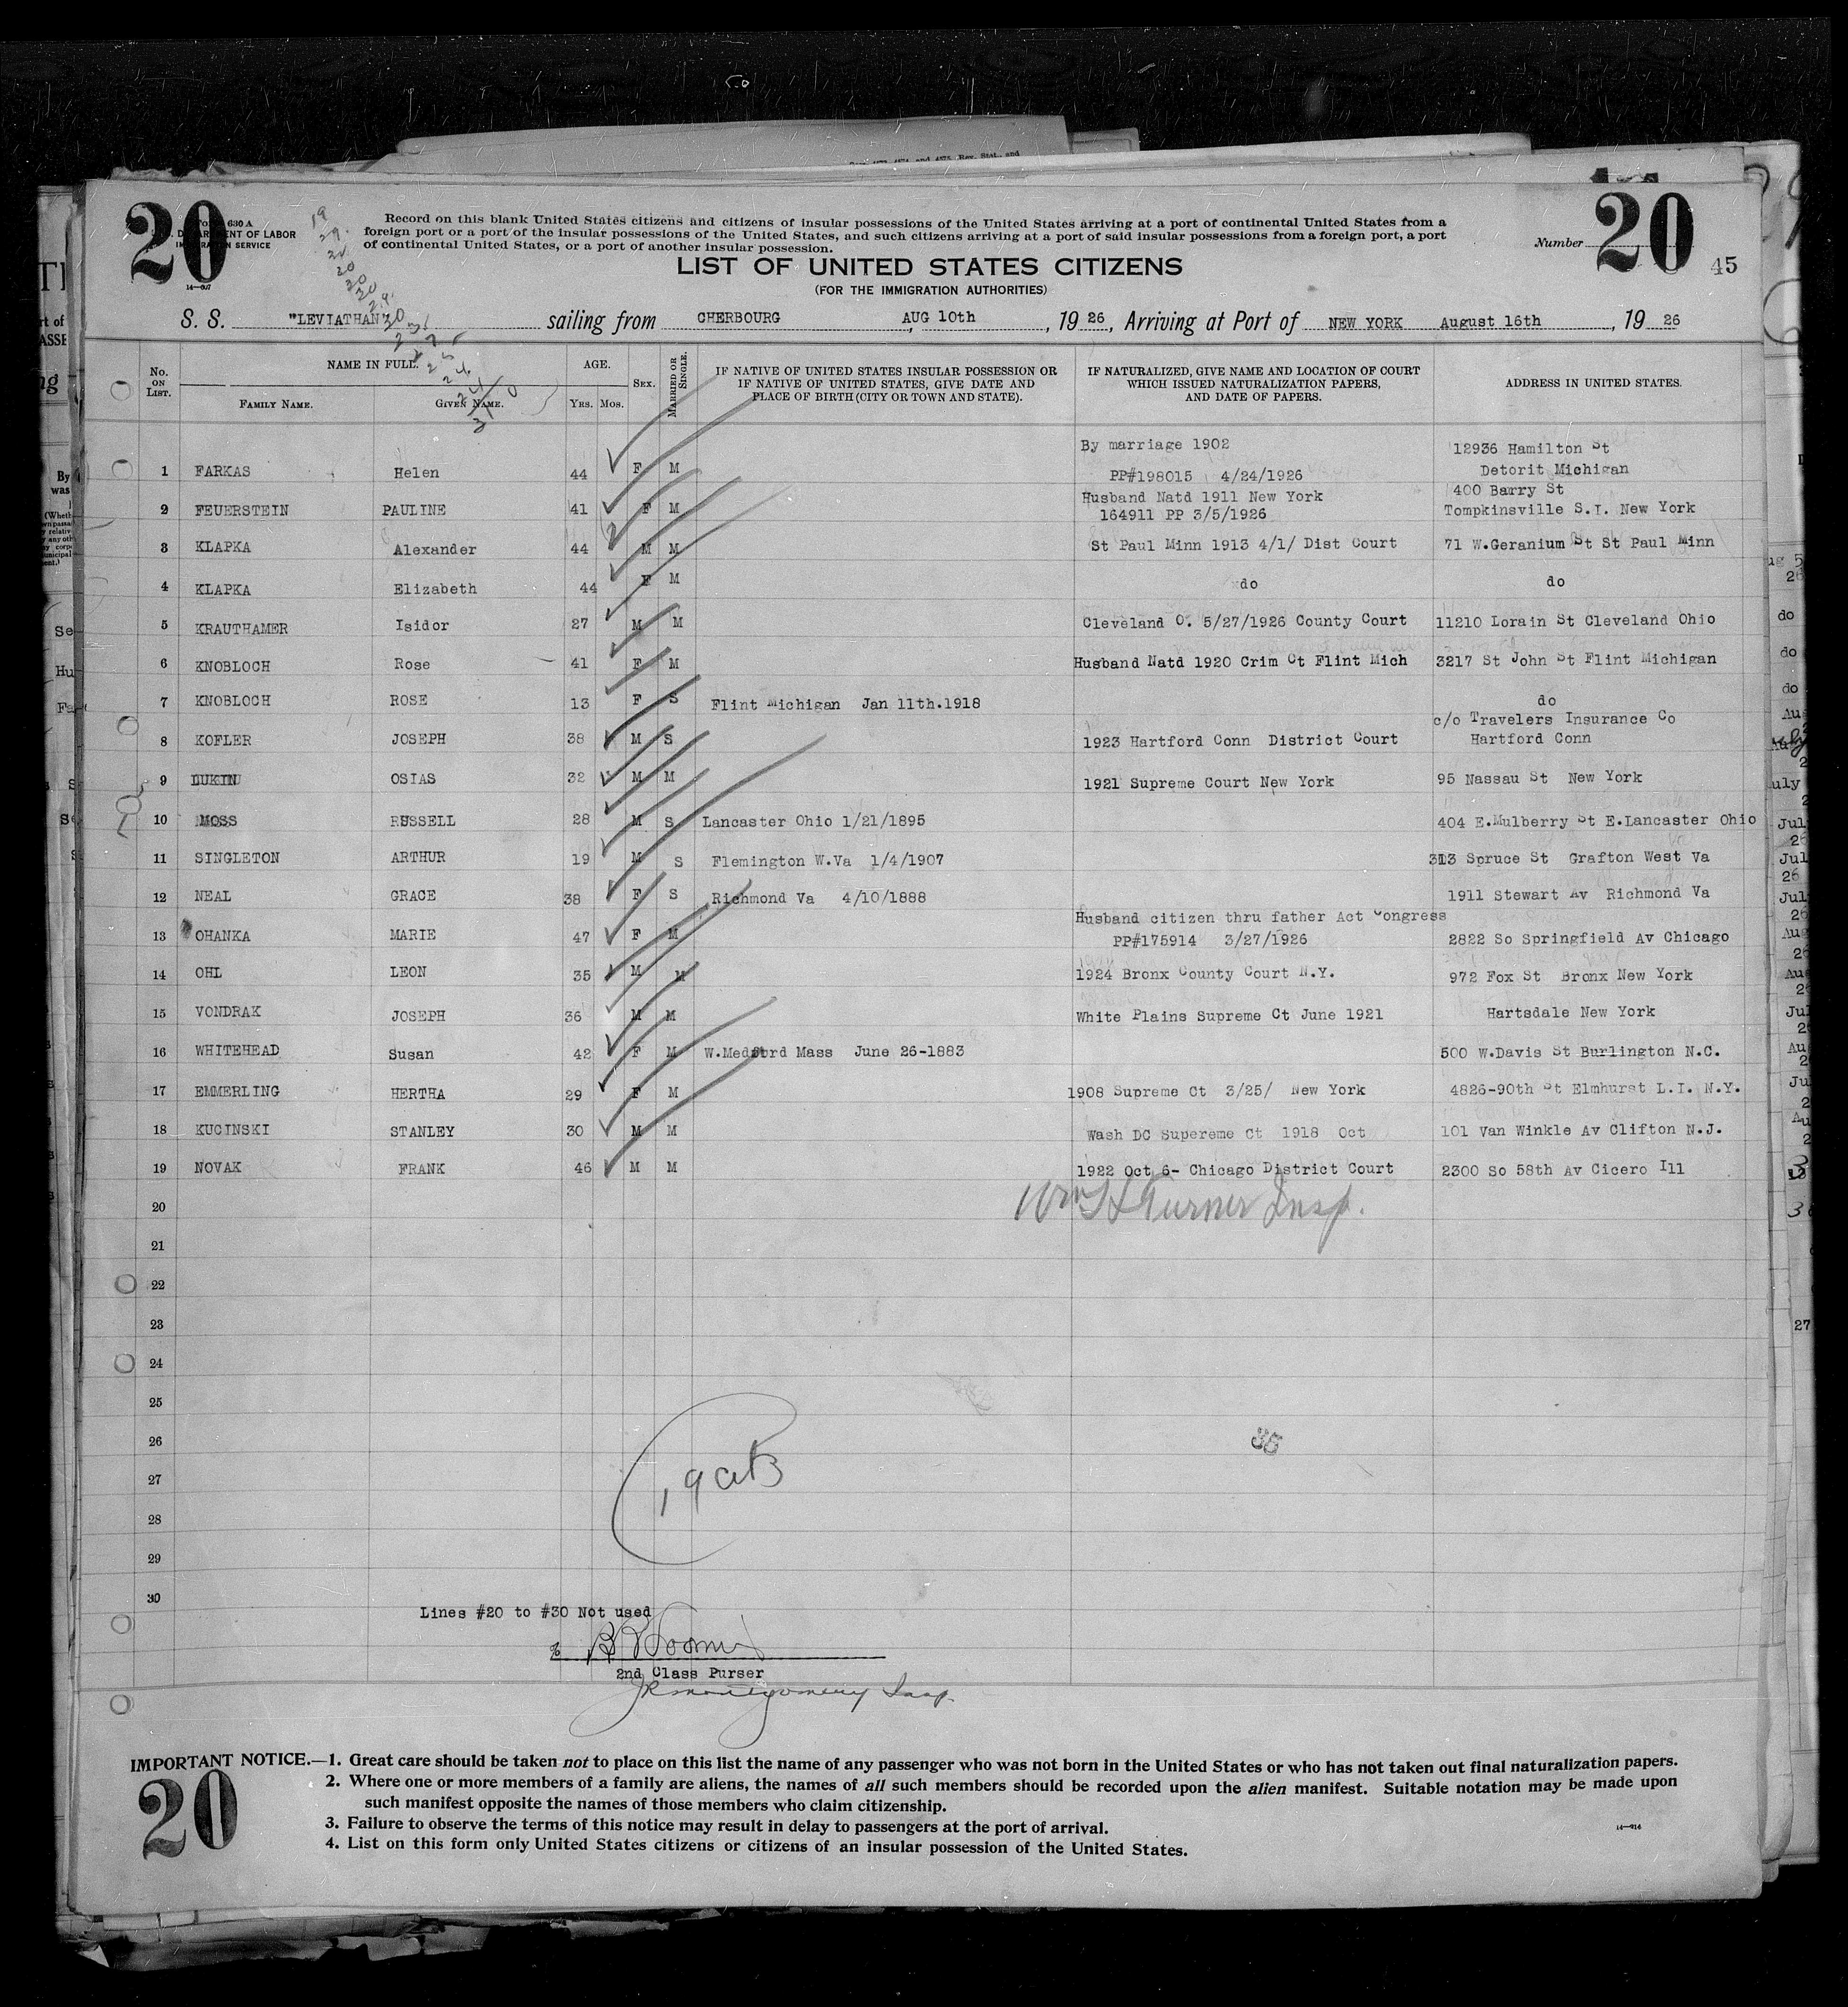 20
630 A
DEPARTMENT OF LABOR
IMMIGRATION SERVICE
14—607
Record on this blank United States citizens and citizens of insular possessions of the United States arriving at a port of continental United States from a
foreign port or a port of the insular possessions of the United States, and such citizens arriving at a port of said insular possessions from a foreign port, a port
of continental United States, or a port of another insular possession.
Number 20
45
LIST OF UNITED STATES CITIZENS
(FOR THE IMMIGRATION AUTHORITIES)
S. S. "LEVIATHAN" sailing from CHERBOURG AUG 10th, 1926, Arriving at Port of NEW YORK August 16th, 1926
No. ON LIST. NAME IN FULL. FAMILY NAME. GIVEN NAME. AGE. YRS. MOS. SEX. MARRIED OR SINGLE. IF NATIVE OF UNITED STATES INSULAR POSSESSION OR IF NATIVE OF UNITED STATES, GIVE DATE AND PLACE OF BIRTH (CITY OR TOWN AND STATE). IF NATURALIZED, GIVE NAME AND LOCATION OF COURT WHICH ISSUED NATURALIZATION PAPERS, AND DATE OF PAPERS. ADDRESS IN UNITED STATES.
By marriage 1902 12936 Hamilton St
1 FARKAS Helen 44 F M PP#198015 4/24/1926 Detorit Michigan
Husband Natd 1911 New York 400 Barry St
2 FEUERSTEIN PAULINE 41 F M 164911 PP 3/5/1926 Tompkinsville S.I. New York
3 KLAPKA Alexander 44 M M St Paul Minn 1913 4/1/ Dist Court 71 W.Geranium St St Paul Minn
4 KLAPKA Elizabeth 44 F M do do
5 KRAUTHAMER Isidor 27 M M Cleveland O. 5/27/1926 County Court 11210 Lorain St Cleveland Ohio
6 KNOBLOCH Rose 41 F M Husband Natd 1920 Crim Ct Flint Mich 3217 St John St Flint Michigan
7 KNOBLOCH ROSE 13 F S Flint Michigan Jan 11th.1918 do
c/o Travelers Insurance Co
8 KOFLER JOSEPH 38 M S 1923 Hartford Conn District Court Hartford Conn
9 LUKIN OSIAS 32 M M 1921 Supreme Court New York 95 Nassau St New York
10 MOSS RUSSELL 28 M S Lancaster Ohio 1/21/1895 404 E.Mulberry St E.Lancaster Ohio
11 SINGLETON ARTHUR 19 M S Flemington W.Va 1/4/1907 313 Spruce St Grafton West Va
12 NEAL GRACE 38 F S Richmond Va 4/10/1888 1911 Stewart Av Richmond Va
Husband citizen thru father Act Congress
13 OHANKA MARIE 47 F M PP#175914 3/27/1926 2822 So Springfield Av Chicago
14 OHL LEON 35 M M 1924 Bronx County Court N.Y. 972 Fox St Bronx New York
15 VONDRAK JOSEPH 36 M M White Plains Supreme Ct June 1921 Hartsdale New York
16 WHITEHEAD Susan 42 F M W.Medford Mass June 26-1883 500 W.Davis St Burlington N.C.
17 EMMERLING HERTHA 29 F M 1908 Supreme Ct 3/25/ New York 4826-90th St Elmhurst L.I. N.Y.
18 KUCINSKI STANLEY 30 M M Wash DC Supereme Ct 1918 Oct 101 Van Winkle Av Clifton N.J.
19 NOVAK FRANK 46 M M 1922 Oct 6- Chicago District Court 2300 So 58th Av Cicero Ill
20 Wm H Turner Insp.
21
22
23
24
25
26
36
27
19
28
29
30
Lines #20 to #30 Not used
2nd Class Purser
JR Montgomery Insp.
IMPORTANT NOTICE.—1. Great care should be taken not to place on this list the name of any passenger who was not born in the United States or who has not taken out final naturalization papers.
2. Where one or more members of a family are aliens, the names of all such members should be recorded upon the alien manifest. Suitable notation may be made upon
such manifest opposite the names of those members who claim citizenship.
3. Failure to observe the terms of this notice may result in delay to passengers at the port of arrival.
4. List on this form only United States citizens or citizens of an insular possession of the United States.
20